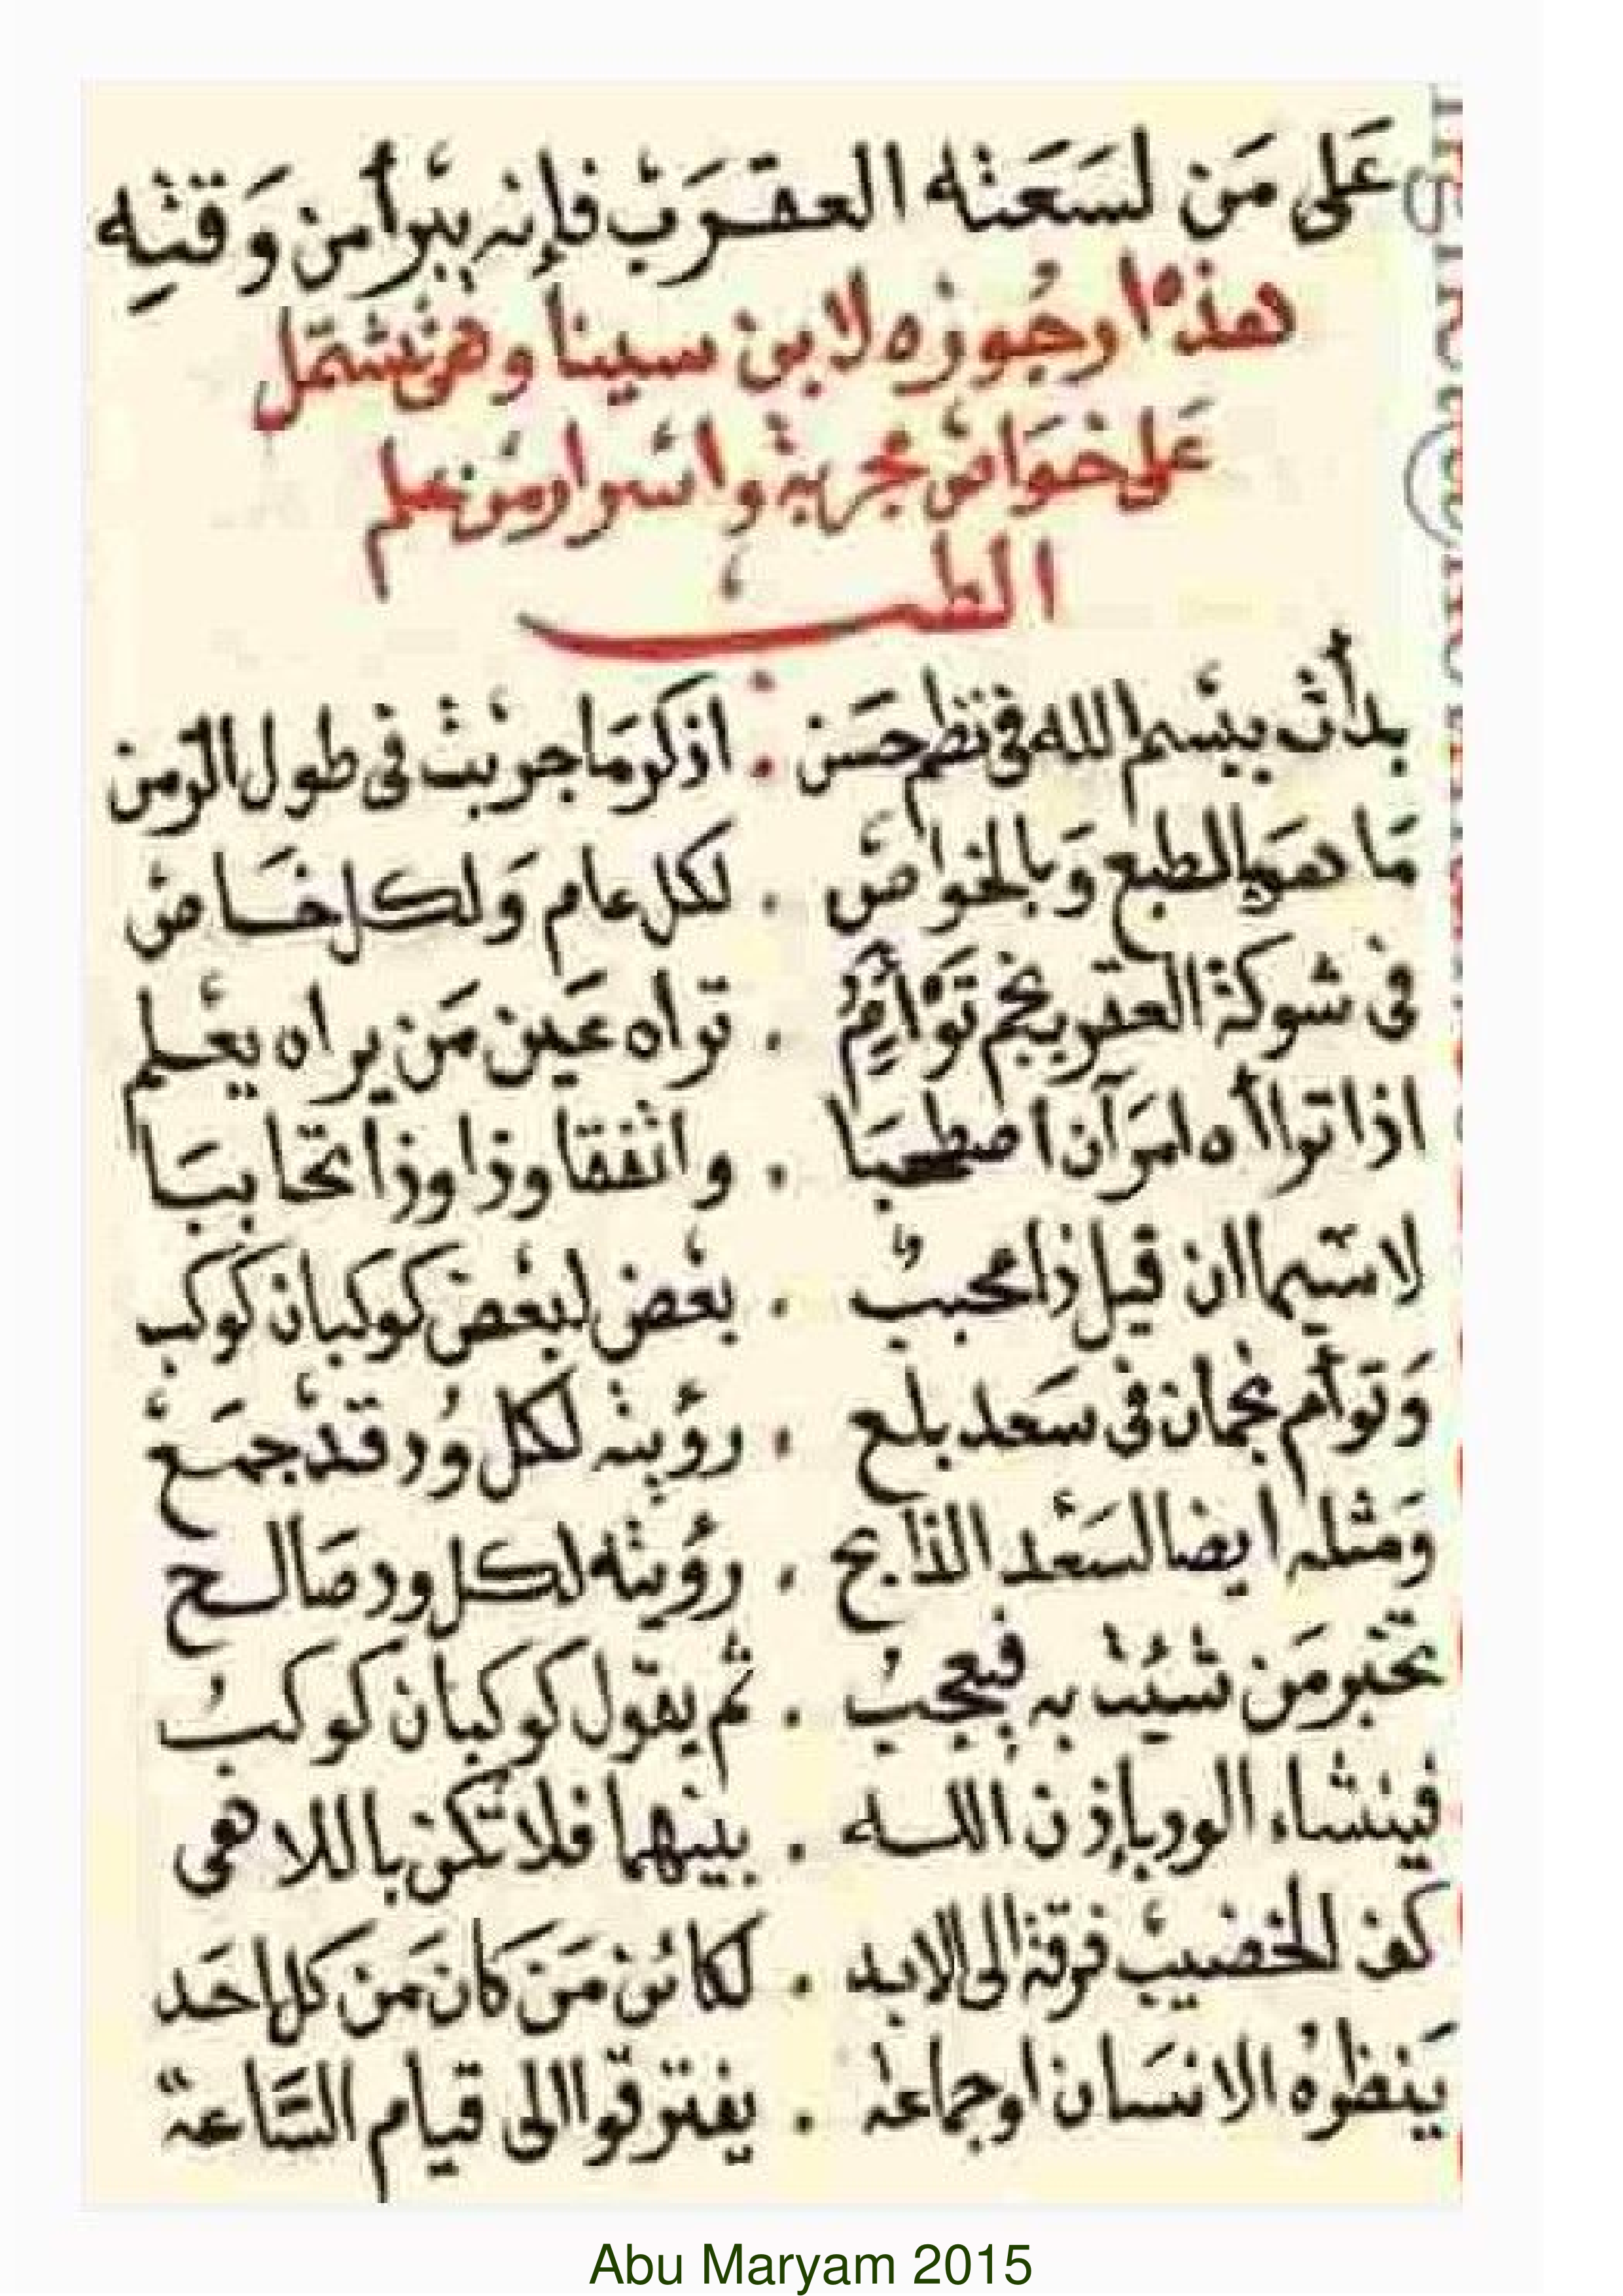 عَلى مَن لسَعَتْه العقرَبْ فإنه يبْرأ من وَقتِه
هذه ارجُوزه لابن سينا وهى تشتمل
عَلى خوَاص مجربة واسْرار من علم
الطب
بدأت ببسْم الله فى نظم حسَن . اذكر مَا جربْتْ فى طول الزمن
مَا هو بالطبع وَبالخواصْ . لكل عام وَلكل خَاصْ
فى شوكة العقرب نجم تَوْأمُ . تراه عَين مَن يراه يعْلم
اذا تراأه امرَآن اصطحبَا . واتفقا وذا وذا تحاببَا
لا سيّما ان قيل ذا محببْ . بعْض لبعْض كوكبان كوكب
وَتوأم نجمان فى سَعد بلع . رؤيته لكل وُد قدْ جمَعْ
وَمثله ايضا السَعْد الذابح . رؤيته لكل ود صَالح
تخبر مَن شئت به فيعجبْ . ثم يقول كوكبان كوكبُ
فينشاء الود باذن الله . بينهما فلا تكن باللاهى
كف الخضيبْ فرقة الى الابد . لكائن مَن كان مَن كل احَد
يَنظرهُ الانسَان او جماعهْ . يفترقوا الى قيام السَّاعة
Abu Maryam 2015